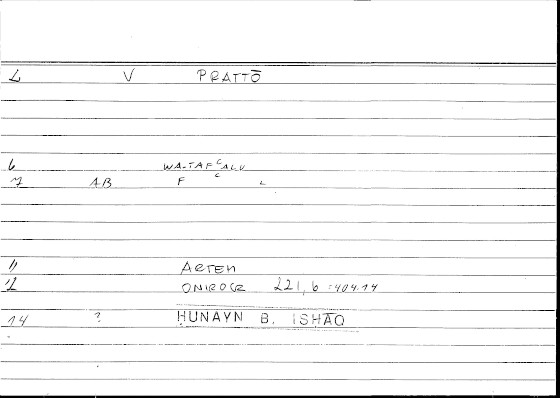 2 V PRATTŌ
6 WA-TAFʿALU
7 AB F ʿ L
11 ARTEM
12 ONIROCR 221,6 = 404.14
14 ? ḤUNAYN B. ISḤĀQ